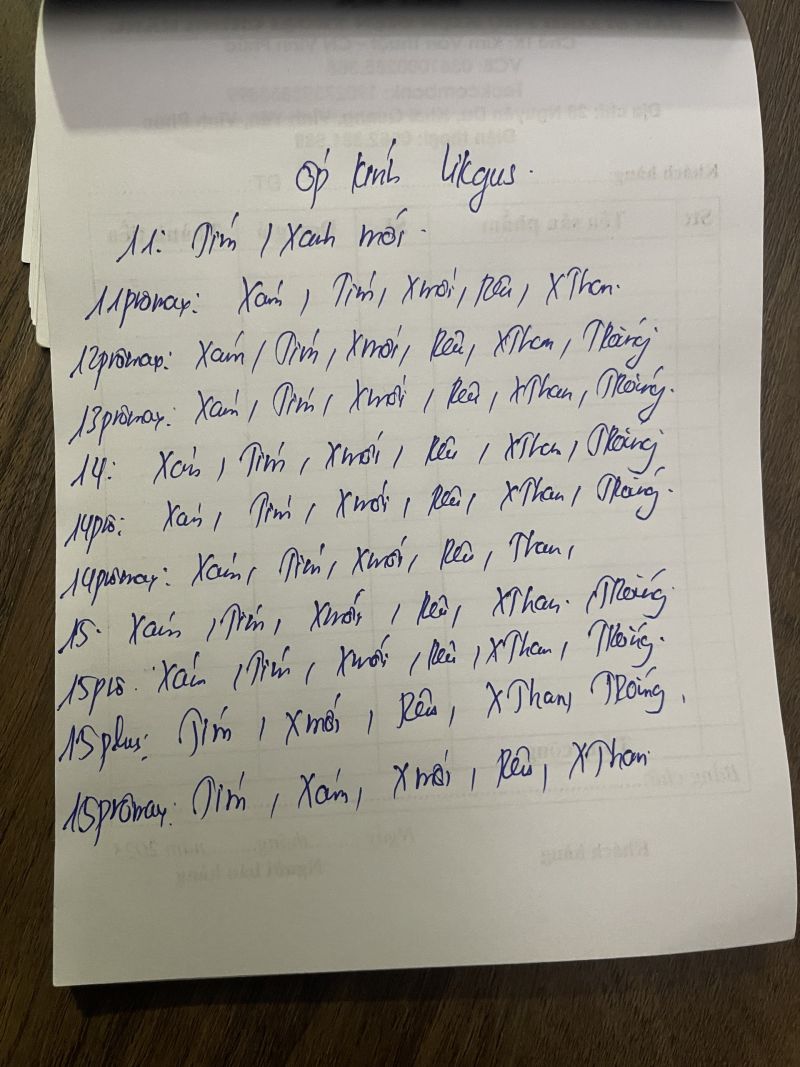 Ốp kính likgus.
11: Tím, Xanh mới.
11promax: Xám, Tím, Xmới, Rêu, XThan.
12promax: Xám, Tím, Xmới, Rêu, XThan, Trắng
13promax: Xám, Tím, Xmới, Rêu, XThan, Trắng.
14: Xám, Tím, Xmới, Rêu, XThan, Trắng
14pro: Xám, Tím, Xmới, Rêu, XThan, Trắng.
14promax: Xám, Tím, Xmới, Rêu, Than,
15. Xám, Tím, Xmới, Rêu, XThan. Trắng
15pro. Xám, Tím, Xmới, Rêu, XThan, Trắng.
15plus: Tím, Xmới, Rêu, XThan, Trắng,
15promax: Tím, Xám, Xmới, Rêu, XThan.